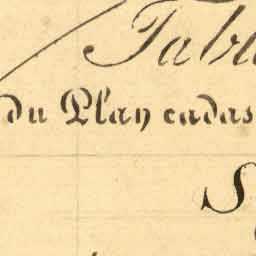 Tabl
du Plan cadas
S